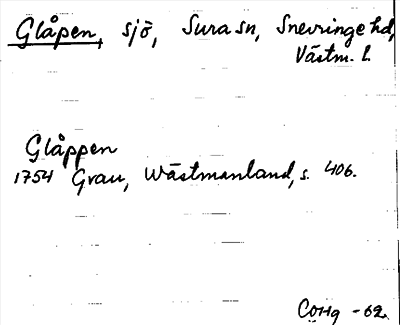 Glåpen, sjö, Sura sn, Snevringe hd,
Västm. l.
Glåppen
1754 Grau, Wästmanland, s. 406.
COHg -62.